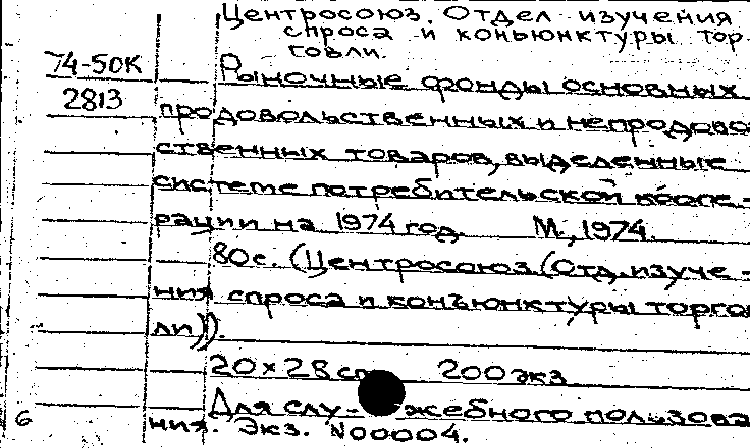 Центросоюз. Отдел изучения
спроса и конъюнктуры тор-
говли.
74-50К
Рыночные фонды основных
2813
продовольственных и непродово
ственных товаров, выделенные
системе потребительской коопе-
рации на 1974 год. М., 1974.
80с. (Центросоюз (Отд. изуче-
ния спроса и конъюнктуры торго
ли)).
20×28 см 200 экз.
Для слу-жебного пользова
ния. Экз. №00004.
6